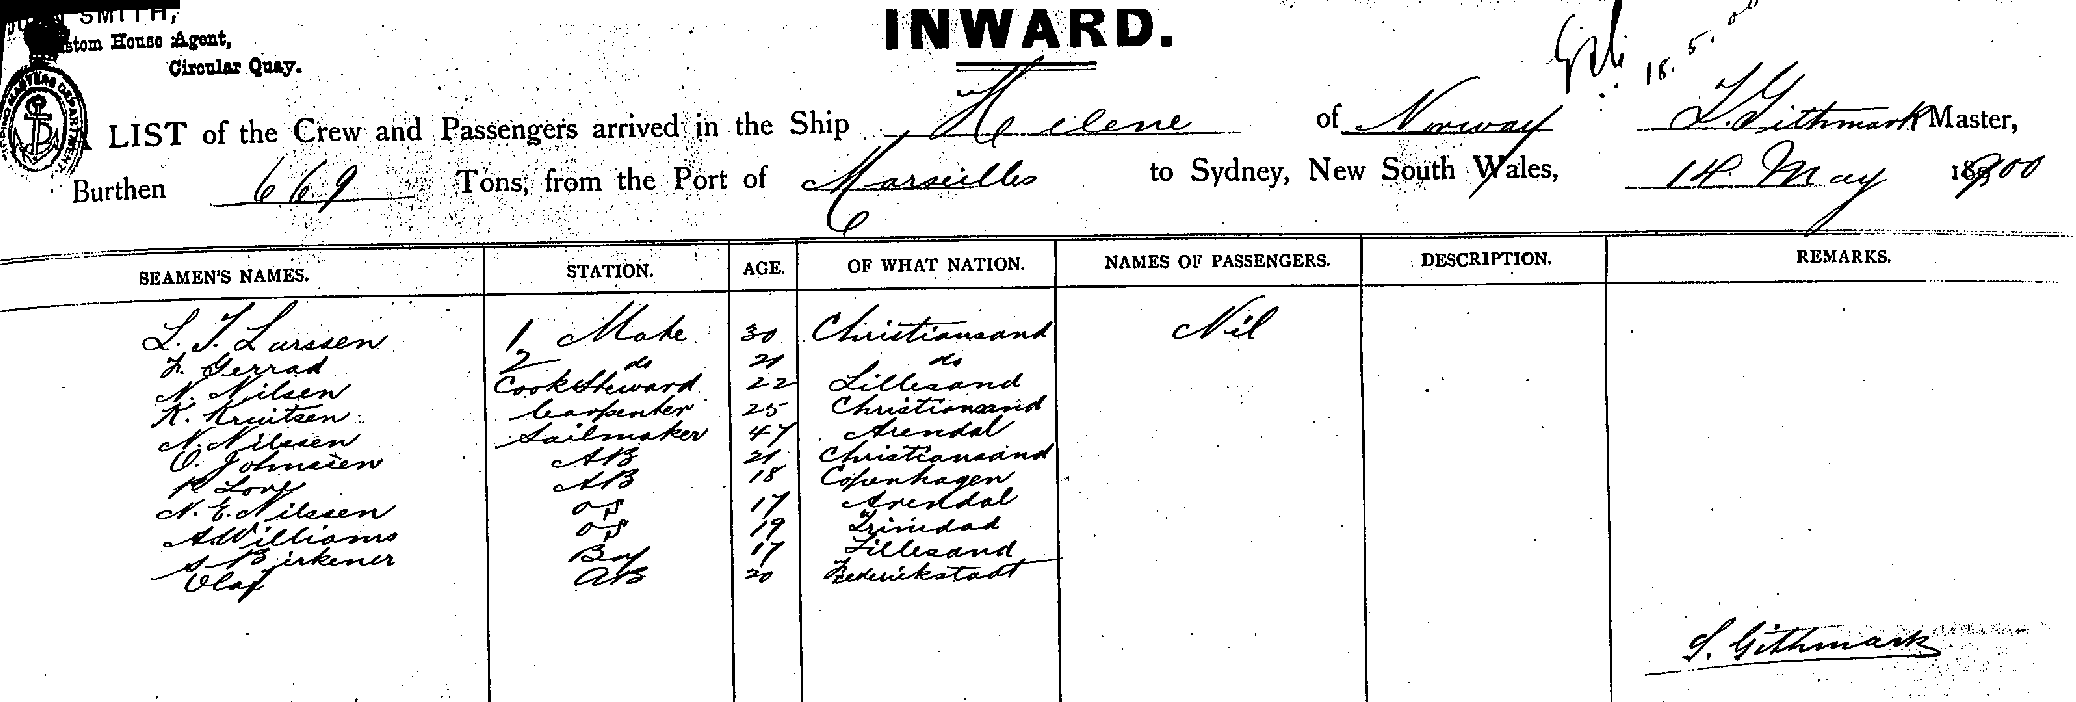 SMITH,
Custom House Agent,
Circular Quay.
INWARD.
18.5.00
A LIST of the Crew and Passengers arrived in the Ship Helene of Norway T. Githmark Master,
Burthen 669 Tons, from the Port of Marseilles to Sydney, New South Wales, 14 May 1900
SEAMEN'S NAMES. STATION. AGE. OF WHAT NATION. NAMES OF PASSENGERS. DESCRIPTION. REMARKS.
L. T. Larssen 1 Mate 30 Christiansand Nil
F. Gerrad 2 do 21 do
N. Nilsen Cook & Steward 22 Lillesand
K. Knutsen Carpenter 25 Christiansand
N. Nilssen Sailmaker 47 Arendal
O. Johnssen AB 21 Christiansand
Lory AB 18 Copenhagen
N. E. Nilssen OS 17 Arendal
A Williams OS 19 Trinidad
S Birkener Boy 17 Lillesand
Olaf AB 20 Frederickstadt
T. Githmark